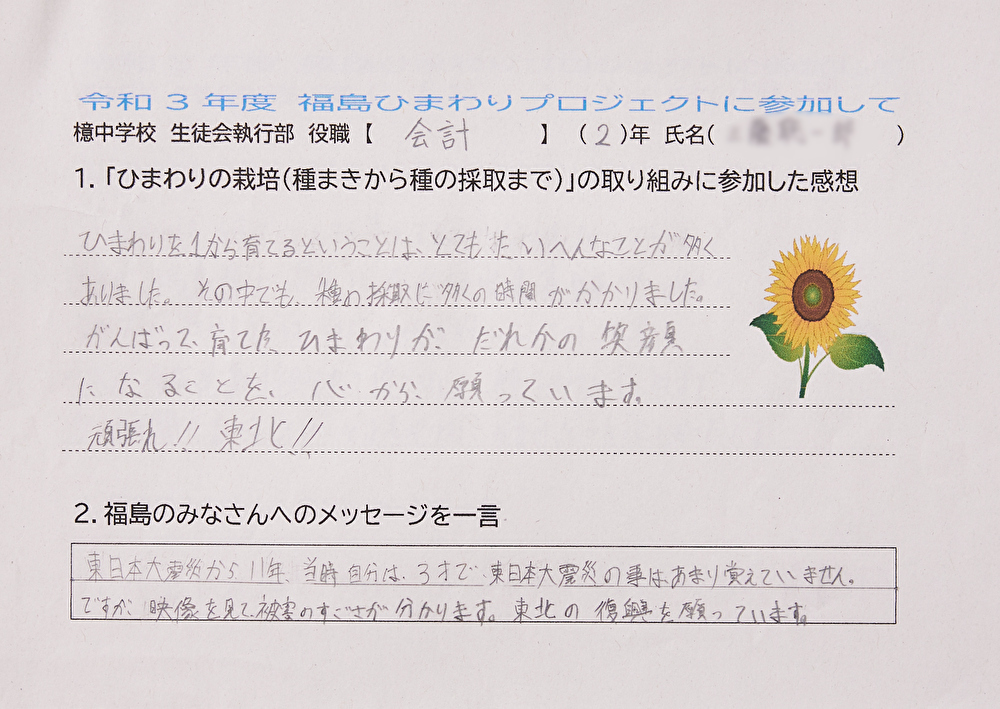 令和3年度 福島ひまわりプロジェクトに参加して
檍中学校 生徒会執行部 役職【 会計 】 (2)年 氏名( )
1.「ひまわりの栽培(種まきから種の採取まで)」の取り組みに参加した感想
ひまわりを1から育てるということは、とてもたいへんなことが多く
ありました。その中でも、種の採取に多くの時間がかかりました。
がんばって、育てたひまわりが、だれかの笑顔
になることを、心から願っています。
頑張れ!!東北!!
2.福島のみなさんへのメッセージを一言
東日本大震災から11年、当時自分は、3才で、東日本大震災の事はあまり覚えていません。
ですが、映像を見て、被害のすごさが分かります。東北の復興を願っています。